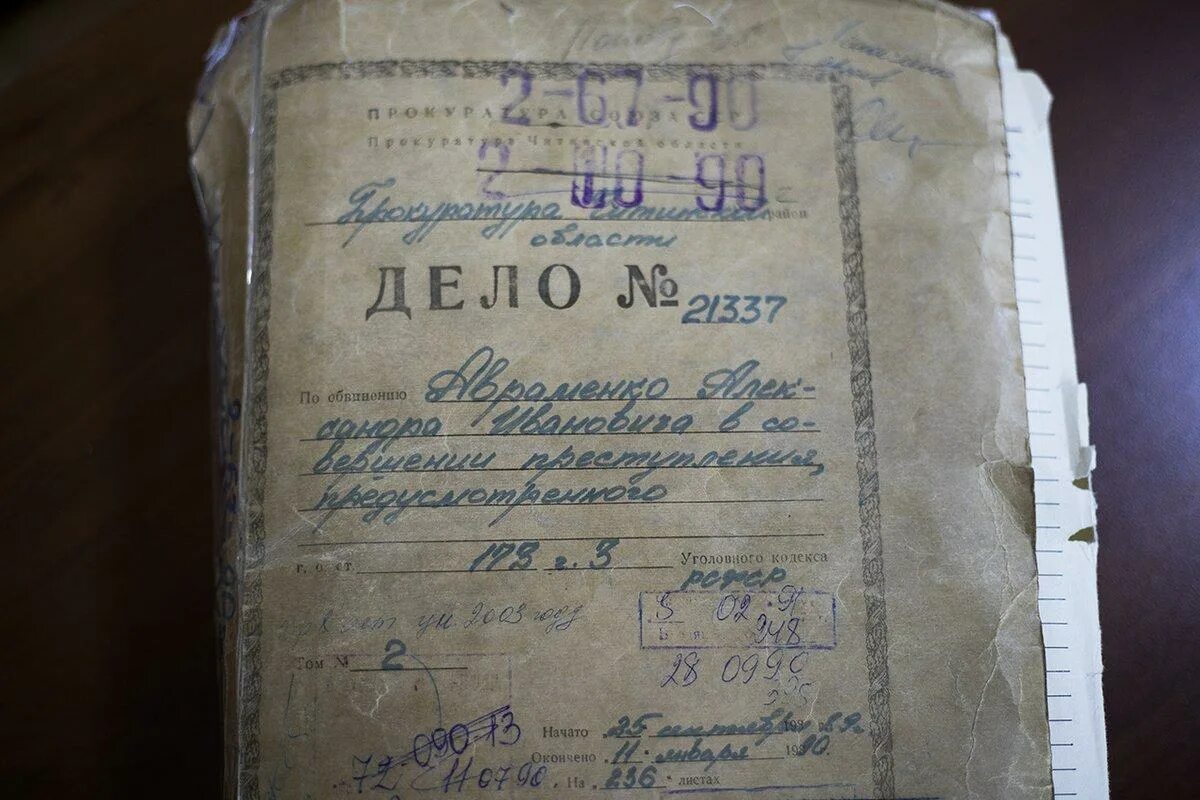 2-67-90
ПРОКУРАТУРА СОЮЗА ССР
Прокуратура Читинской области
2-110-90
Прокуратура Читинской район
области
ДЕЛО № 21337
По обвинению Авраменко Алек-
сандра Ивановича в со-
вершении преступления,
предусмотренного
п. о. ст. 173 ч. 3 Уголовного кодекса
РСФСР
2003 году
02
248
Том № 2
28 09 90
Начато 25 сентября 1989 г.
09013
Окончено 11 января 1990.
72 110790. На 236 листах